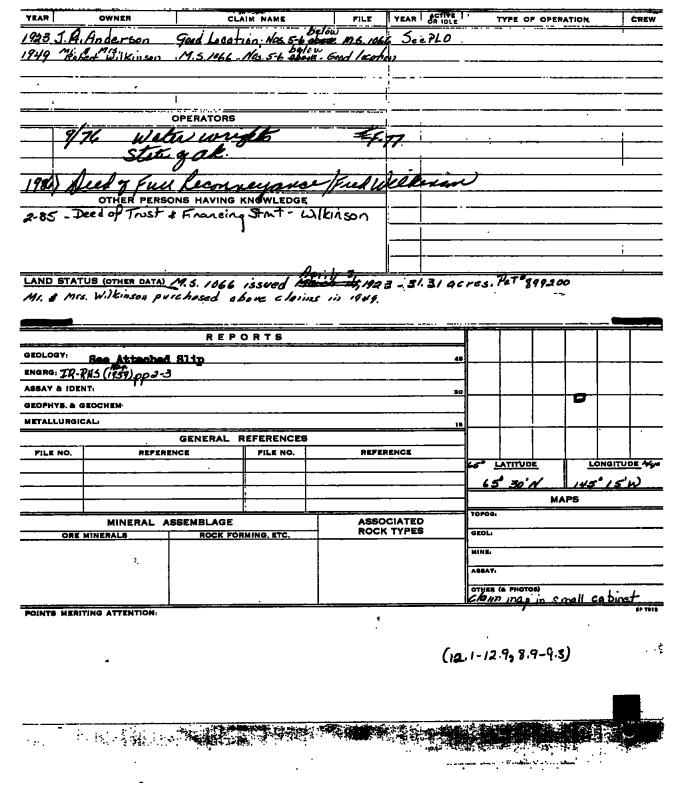 YEAR OWNER CLAIM NAME FILE YEAR ACTIVE OR IDLE TYPE OF OPERATION CREW
below
1923 J.A. Anderson Good Location. Nos. 5-6 above M.S. 1066 See PLO
Mr. & Mrs. below
1949 Robert Wilkinson M.S. 1066 Nos. 5-6 above - Good location
OPERATORS
9/76 Water wright
State of ak.
Deed of Full Reconveyance / Fred Wilkinson
OTHER PERSONS HAVING KNOWLEDGE
2-85 - Deed of Trust & Financing Stmt - Wilkinson
LAND STATUS (OTHER DATA) M.S. 1066 issued 1923 - 31.31 acres. Pat # 899200
Mr. & Mrs. Wilkinson purchased above claims in 1949.
REPORTS
GEOLOGY: See Attached Slip 45
ENGRG: IR-RNS (1959) pp 2-3
ASSAY & IDENT: 30
GEOPHYS. & GEOCHEM.
METALLURGICAL: 15
GENERAL REFERENCES
FILE NO. REFERENCE FILE NO. REFERENCE
65° LATITUDE LONGITUDE
65° 30' N 145° 15' W
MAPS
MINERAL ASSEMBLAGE ASSOCIATED ROCK TYPES
ORE MINERALS ROCK FORMING, ETC.
TOPOG:
GEOL:
MINE:
ASSAY:
OTHER (& PHOTOS)
Claim map in small cabinet
POINTS MERITING ATTENTION:
(12.1-12.9, 8.9-9.3)